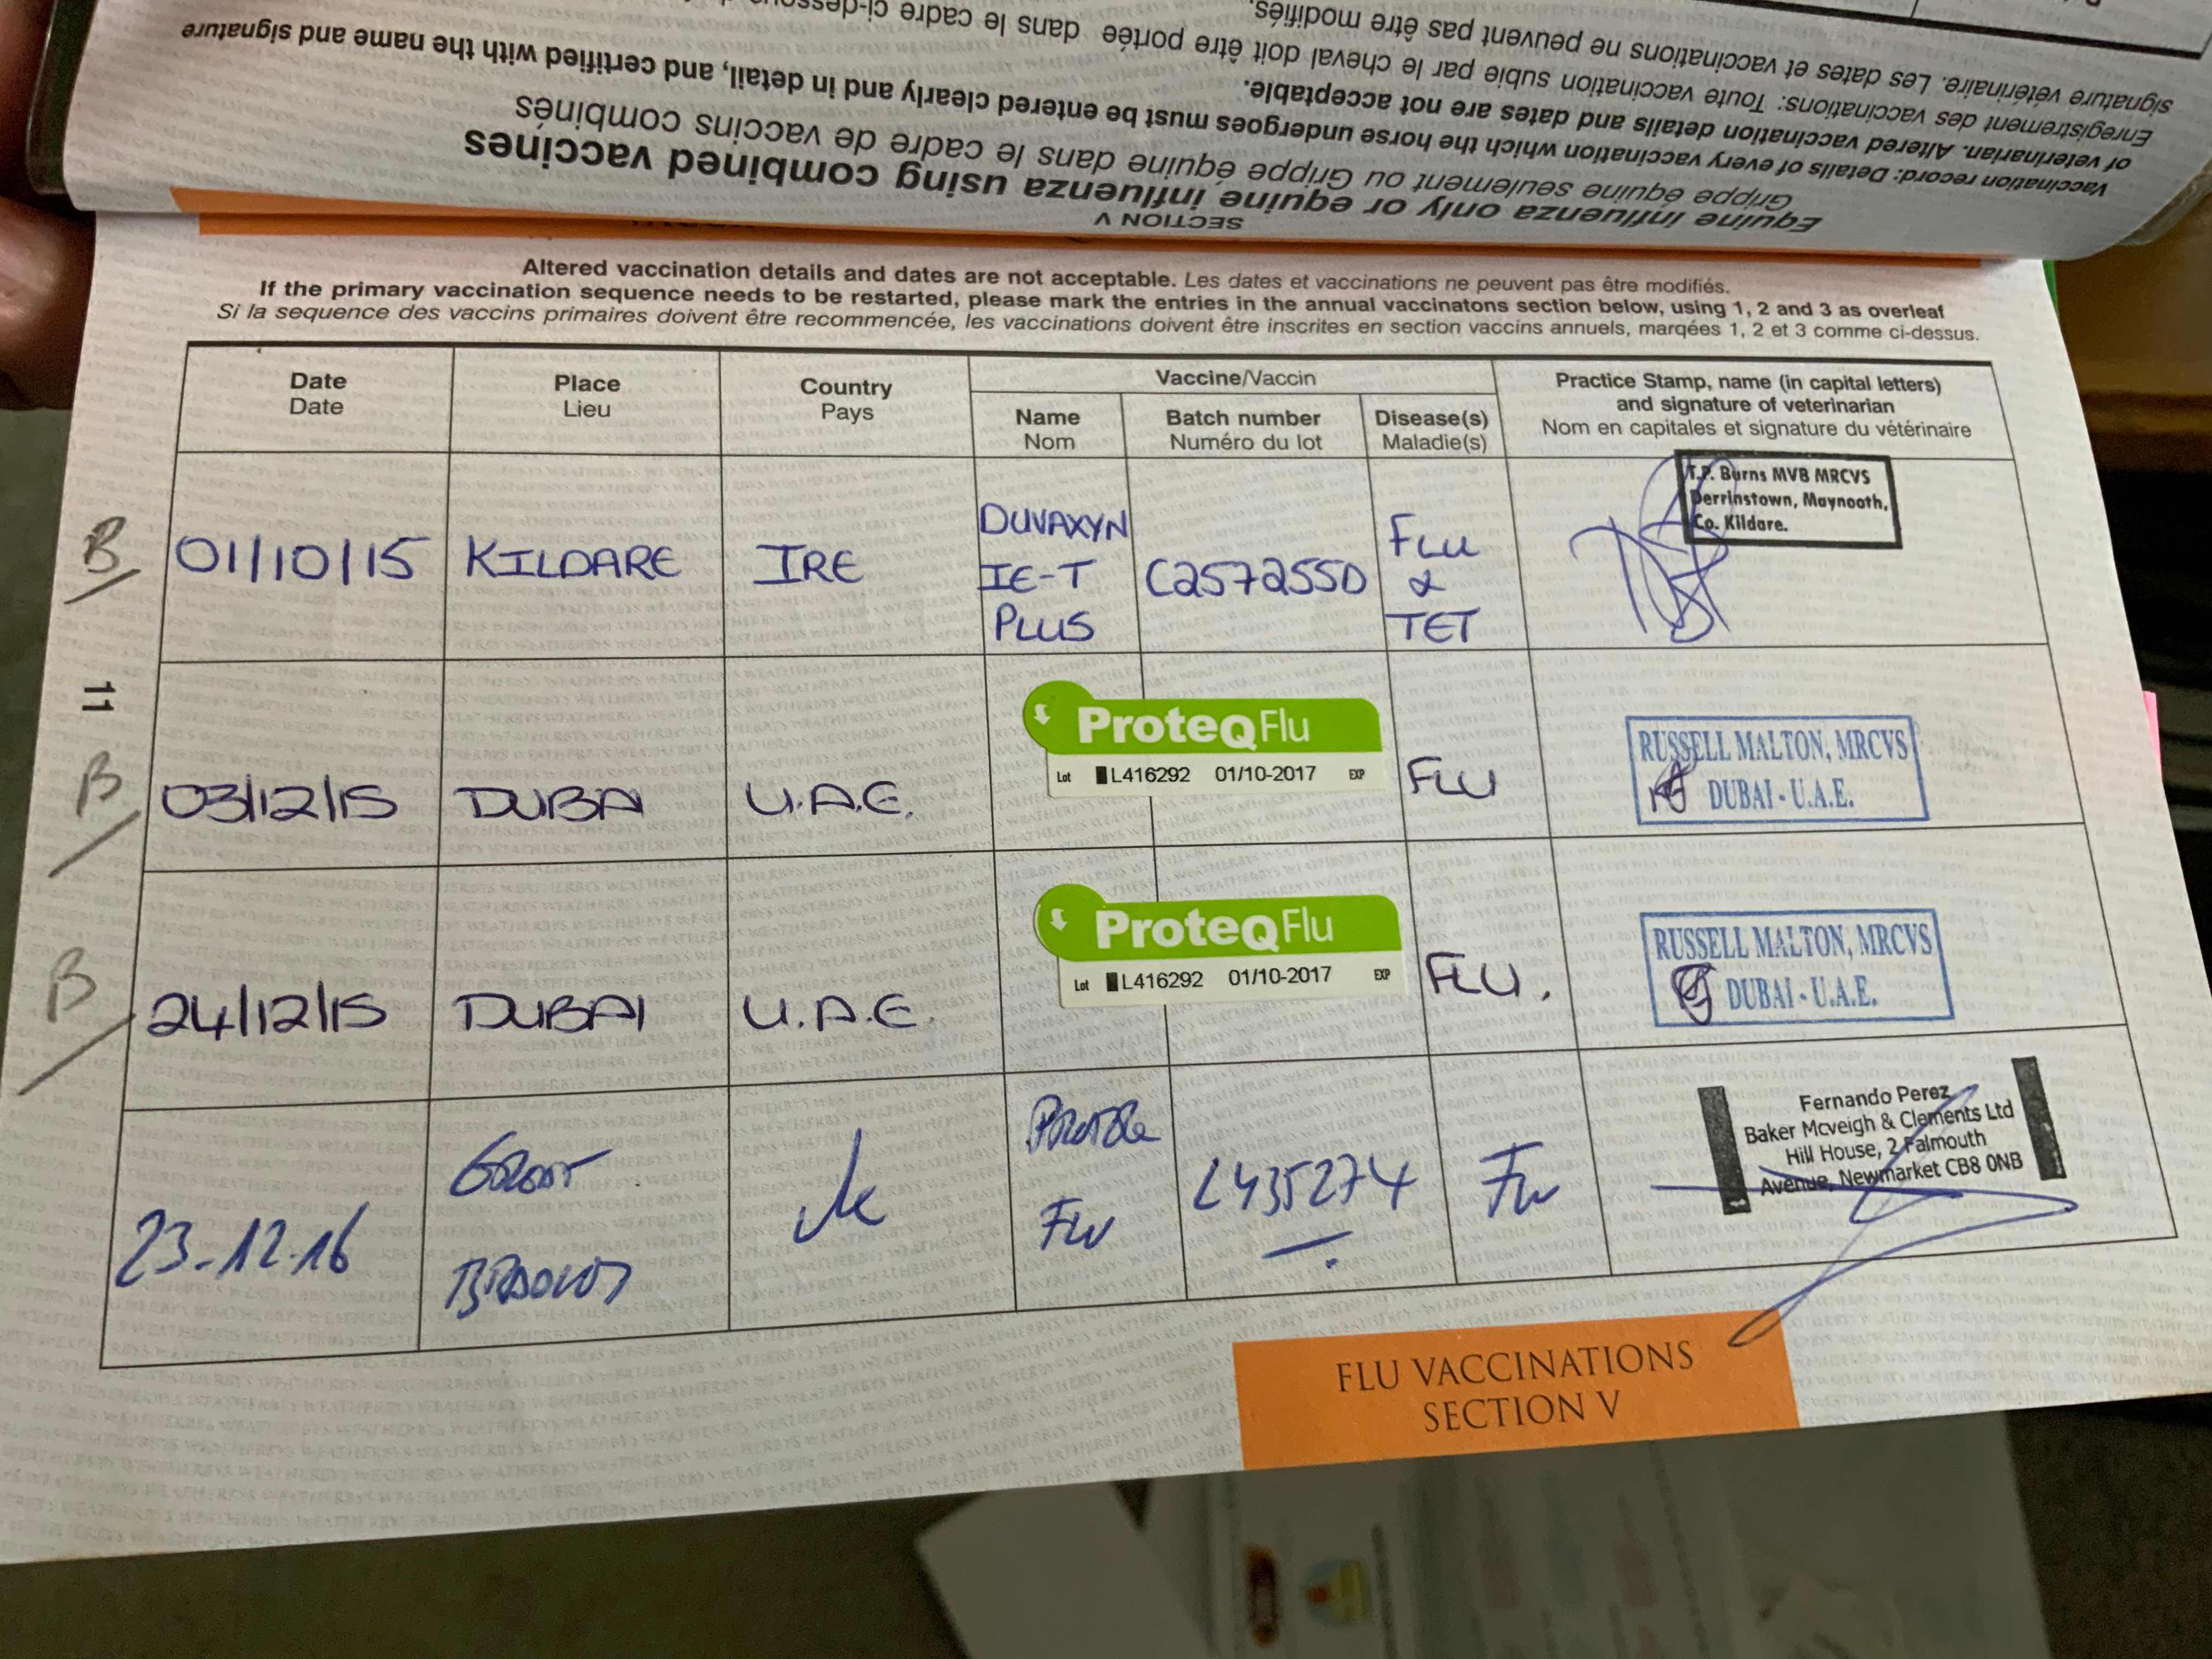 signature vétérinaire. Les dates et vaccinations ne peuvent pas être modifiés.
Enregistrement des vaccinations: Toute vaccination subie par le cheval doit être portée dans le cadre
of veterinarian. Altered vaccination details and dates are not acceptable.
Vaccination record: Details of every vaccination which the horse undergoes must be entered clearly and in detail, and certified with the name and signature
Grippe équine seulement ou Grippe équine dans le cadre de vaccins combinés
Equine influenza only or equine influenza using combined vaccines
SECTION V
Altered vaccination details and dates are not acceptable. Les dates et vaccinations ne peuvent pas être modifiés.
If the primary vaccination sequence needs to be restarted, please mark the entries in the annual vaccinatons section below, using 1, 2 and 3 as overleaf
Si la sequence des vaccins primaires doivent être recommencée, les vaccinations doivent être inscrites en section vaccins annuels, marqées 1, 2 et 3 comme ci-dessus.
Date
Date
Place
Lieu
Country
Pays
Vaccine/Vaccin
Name
Nom
Batch number
Numéro du lot
Disease(s)
Maladie(s)
Practice Stamp, name (in capital letters)
and signature of veterinarian
Nom en capitales et signature du vétérinaire
B
01/10/15
KILDARE
IRE
DUVAXYN
IE-T
PLUS
C257255D
FLU
&
TET
T.P. Burns MVB MRCVS
Derrinstown, Maynooth,
Co. Kildare.
11
B
03/12/15
DUBAI
U.A.E.
ProteqFlu
Lot L416292 01/10-2017 EXP
FLU
RUSSELL MALTON, MRCVS
DUBAI - U.A.E.
B
24/12/15
DUBAI
U.A.E.
ProteqFlu
Lot L416292 01/10-2017 EXP
FLU.
RUSSELL MALTON, MRCVS
DUBAI - U.A.E.
23-12-16
UK
Flu
L435274
Flu
Fernando Perez
Baker Mcveigh & Clements Ltd
Hill House, 2 Falmouth
Avenue, Newmarket CB8 0NB
FLU VACCINATIONS
SECTION V